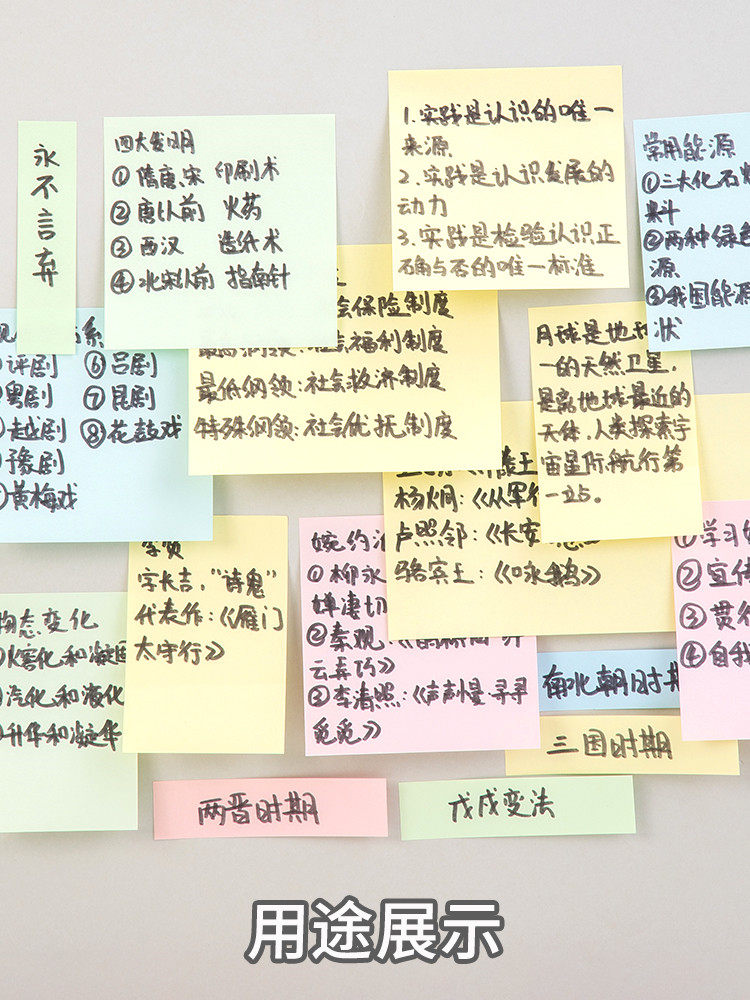 永不言弃
四大发明
①隋唐、宋 印刷术
②唐以前 火药
③西汉 造纸术
④北宋以前 指南针
1.实践是认识的唯一
来源
2.实践是认识发展的
动力
3.实践是检验认识正
确与否的唯一标准
常用能源
①三大化石
料
②两种绿色
源
③我国能源
状
评剧 ⑥吕剧
粤剧 ⑦昆剧
越剧 ⑧花鼓戏
豫剧
黄梅戏
会保险制度
社会福利制度
最低纲领:社会救济制度
特殊纲领:社会优抚制度
月球是地球
一的天然卫星,
是离地球最近的
天体,人类探索宇
宙星际航行第
一站。
杨炯:《从军行
卢照邻:《长安
骆宾王:《咏鹅》
字长吉,“诗鬼”
代表作:《雁门
太守行》
婉约
①柳永
蝉凄切
②秦观:
云弄巧》
③李清照:《声声慢·寻寻
觅觅》
①学习
②宣传
③贯彻
④自我
物态变化
汽化和液化
升华和凝华
南北朝时期
三国时期
两晋时期
戊戌变法
用途展示